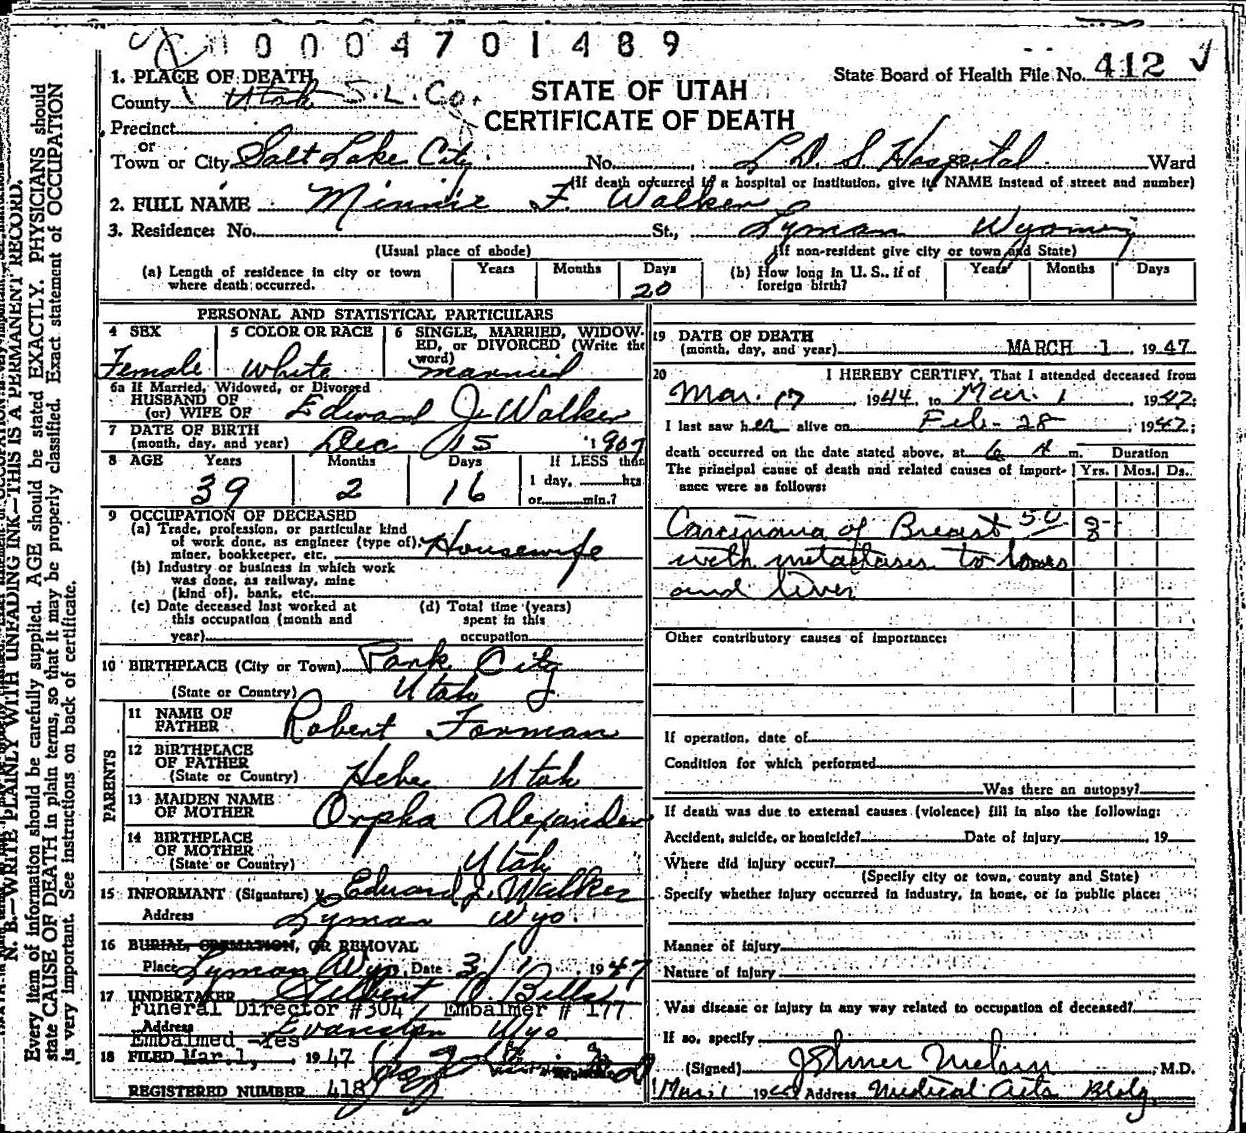 0004701489
State Board of Health File No. 412
STATE OF UTAH
CERTIFICATE OF DEATH
1. PLACE OF DEATH
County Utah S.L. Co.
Precinct
or
Town or City Salt Lake City No. L D S Hospital Ward
(If death occurred in a hospital or institution, give its NAME instead of street and number)
2. FULL NAME Minnie F. Walker
3. Residence: No. St., Lyman Wyoming
(Usual place of abode) (If non-resident give city or town and State)
(a) Length of residence in city or town where death occurred. Years Months Days 20
(b) How long in U. S., if of foreign birth? Years Months Days
PERSONAL AND STATISTICAL PARTICULARS
4 SEX Female
5 COLOR OR RACE White
6 SINGLE, MARRIED, WIDOWED, or DIVORCED (Write the word) married
6a If Married, Widowed, or Divorced
HUSBAND OF
(or) WIFE OF Edward J. Walker
7 DATE OF BIRTH
(month, day, and year) Dec 15 1907
8 AGE Years Months Days If LESS than
39 2 16 1 day, hrs.
or min.?
9 OCCUPATION OF DECEASED
(a) Trade, profession, or particular kind
of work done, as engineer (type of),
miner, bookkeeper, etc. Housewife
(b) Industry or business in which work
was done, as railway, mine
(kind of), bank, etc.
(c) Date deceased last worked at
this occupation (month and
year)
(d) Total time (years)
spent in this
occupation
10 BIRTHPLACE (City or Town) Park City
(State or Country) Utah
PARENTS
11 NAME OF
FATHER Robert Forman
12 BIRTHPLACE
OF FATHER
(State or Country) Heber Utah
13 MAIDEN NAME
OF MOTHER Orpha Alexander
14 BIRTHPLACE
OF MOTHER
(State or Country) Utah
15 INFORMANT (Signature) x Edward J. Walker
Address Lyman Wyo.
16 BURIAL, CREMATION, OR REMOVAL
Place Lyman Wyo Date 3/1 1947
17 UNDERTAKER Gilbert O Bills
Funeral Director #304 Embalmer # 177
Address Evanston Wyo
Embalmed -Yes
18 FILED Mar. 1, 1947
REGISTERED NUMBER 418
19 DATE OF DEATH
(month, day, and year) MARCH 1 1947
20 I HEREBY CERTIFY, That I attended deceased from
Mar. 17 1944, to Mar. 1 1947;
I last saw her alive on Feb- 28, 1947;
death occurred on the date stated above, at 6 A m. Duration
The principal cause of death and related causes of importance were as follows: Yrs. Mos. Ds.
Carcinoma of Breast 50
with metastasis to bones
and liver
Other contributory causes of importance:
If operation, date of
Condition for which performed
Was there an autopsy?
If death was due to external causes (violence) fill in also the following:
Accident, suicide, or homicide? Date of injury , 19
Where did injury occur?
(Specify city or town, county and State)
Specify whether injury occurred in industry, in home, or in public place:
Manner of injury
Nature of injury
Was disease or injury in any way related to occupation of deceased?
If so, specify
(Signed) J Elmer Nelson M.D.
Mar. 1 Address Medical Arts Bldg.
N. B.—WRITE PLAINLY WITH UNFADING INK—THIS IS A PERMANENT RECORD.
Every item of information should be carefully supplied. AGE should be stated EXACTLY. PHYSICIANS should
state CAUSE OF DEATH in plain terms, so that it may be properly classified. Exact statement of OCCUPATION
is very important. See instructions on back of certificate.